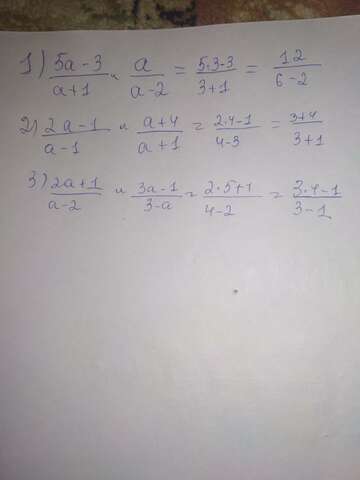 1) (5a-3)/(a+1) и a/(a-2) = (5·3-3)/(3+1) = 12/(6-2)
2) (2a-1)/(a-1) и (a+4)/(a+1) = (2·4-1)/(4-3) = (3+4)/(3+1)
3) (2a+1)/(a-2) и (3a-1)/(3-a) = (2·5+1)/(4-2) = (3·4-1)/(3-1)